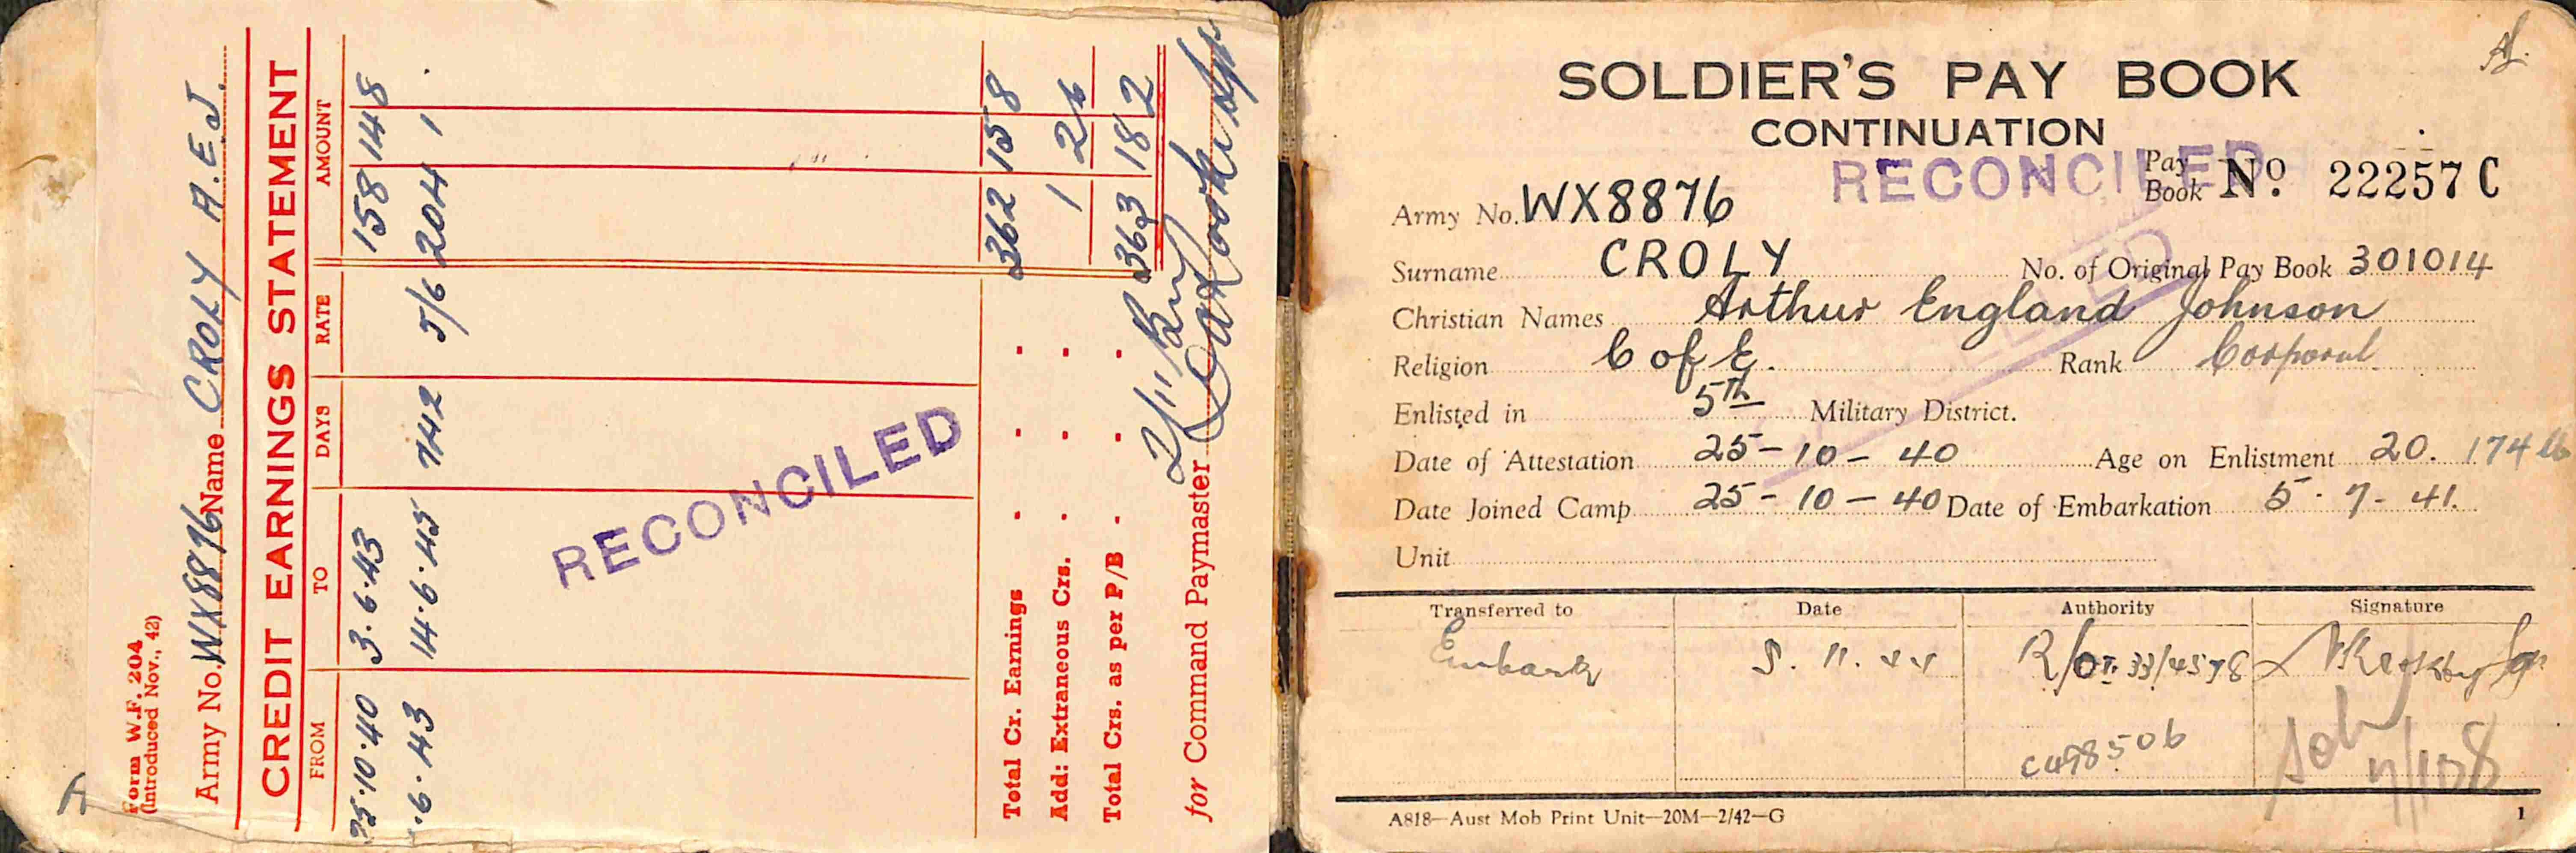 Form W.F. 204
(Introduced Nov., 42)
Army No. WX8876 Name CROLY A.E.J.
CREDIT EARNINGS STATEMENT
FROM TO DAYS RATE AMOUNT
25.10.40 3.6.43 158 14 8
.6.43 14.6.45 742 5/6 204 1
RECONCILED
Total Cr. Earnings 362 15 8
Add: Extraneous Crs. 1 2 6
Total Crs. as per P/B 363 18 2
for Command Paymaster
A
SOLDIER'S PAY BOOK
CONTINUATION
RECONCILED
Pay Book No. 22257 C
Army No. WX8876
Surname CROLY No. of Original Pay Book 301014
Christian Names Arthur England Johnson
Religion C of E. Rank Corporal
Enlisted in 5th Military District.
Date of Attestation 25-10-40 Age on Enlistment 20. 174 lb
Date Joined Camp 25-10-40 Date of Embarkation 5.7.41.
Unit
Transferred to Date Authority Signature
Embark 5.11.44
C498506
A818—Aust Mob Print Unit—20M—2/42—G
1